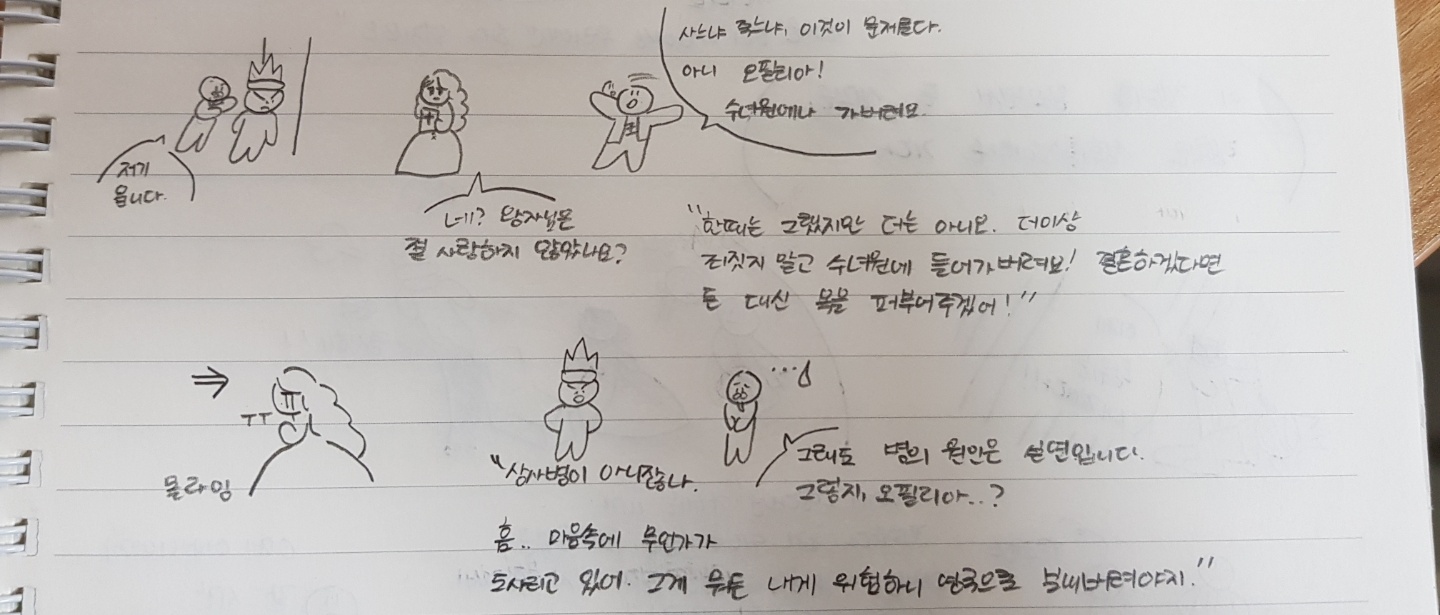 사느냐 죽느냐, 이것이 문제로다.
아니 오필리아!
수녀원에나 가버려요.
저기
옵니다.
네? 왕자님은
절 사랑하지 않았나요?
"한때는 그랬지만 더는 아니오. 더이상
짓지 말고 수녀원에 들어가버려요! 결혼하겠다면
돈 대신 욕을 퍼부어주겠어!"
⇒
ㅠㅠ
몰라잉
"상사병이 아니잖나.
흠.. 마음속에 무언가가
도사리고 있어. 그게 무튼 내게 위험하니 영국으로 보내버려야지."
...
그래도 병의 원인은 실연입니다.
그렇지, 오필리아..?